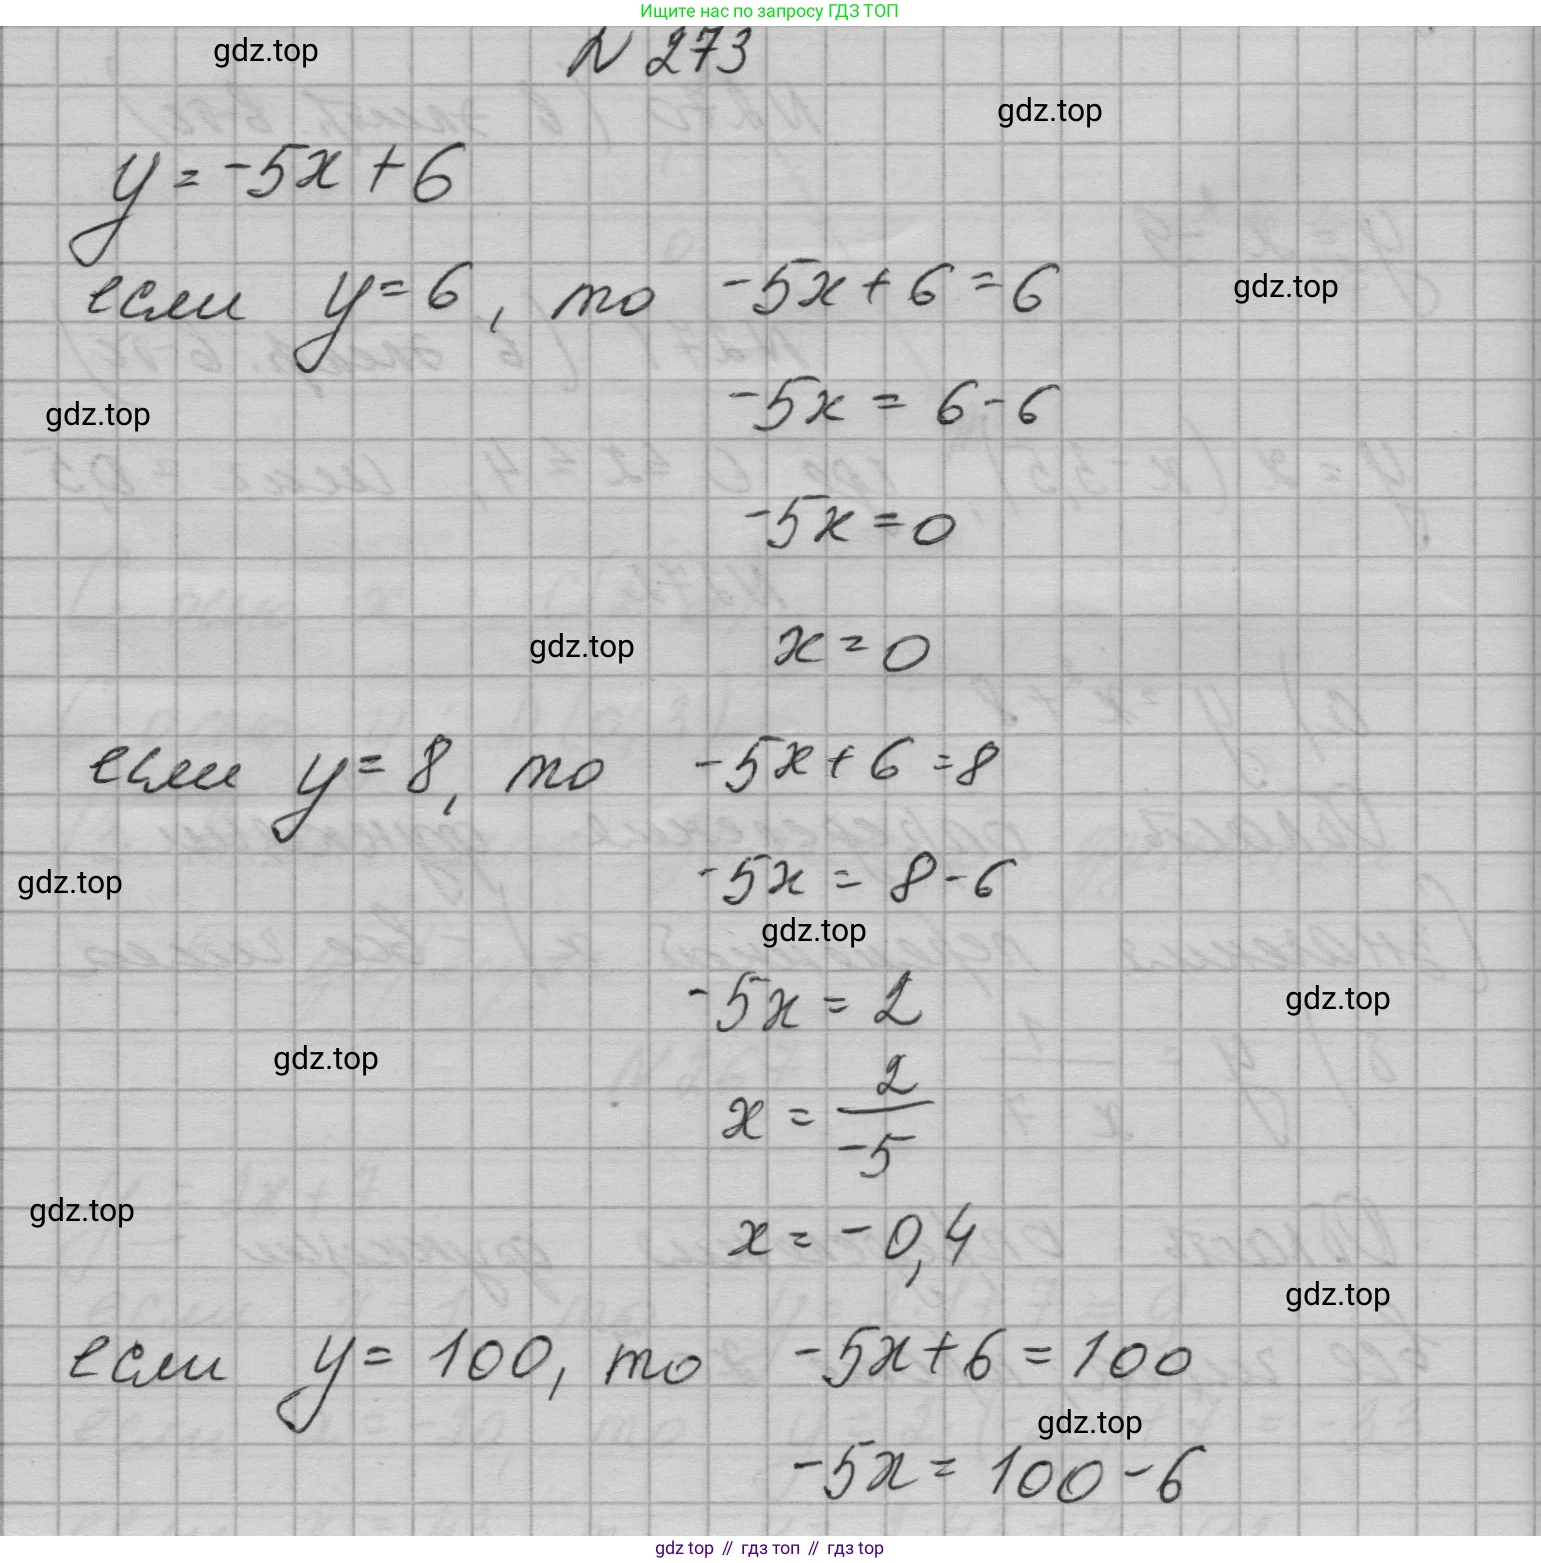 Ищите нас по запросу ГДЗ ТОП
N 273
gdz.top
gdz.top
y = -5x + 6
если y = 6, то -5x + 6 = 6
gdz.top
-5x = 6 - 6
gdz.top
-5x = 0
gdz.top
x = 0
если y = 8, то -5x + 6 = 8
gdz.top
-5x = 8 - 6
gdz.top
-5x = 2
gdz.top
gdz.top
x = 2/-5
gdz.top
x = -0,4
gdz.top
если y = 100, то -5x + 6 = 100
gdz.top
-5x = 100 - 6
gdz top // гдз топ // гдз top